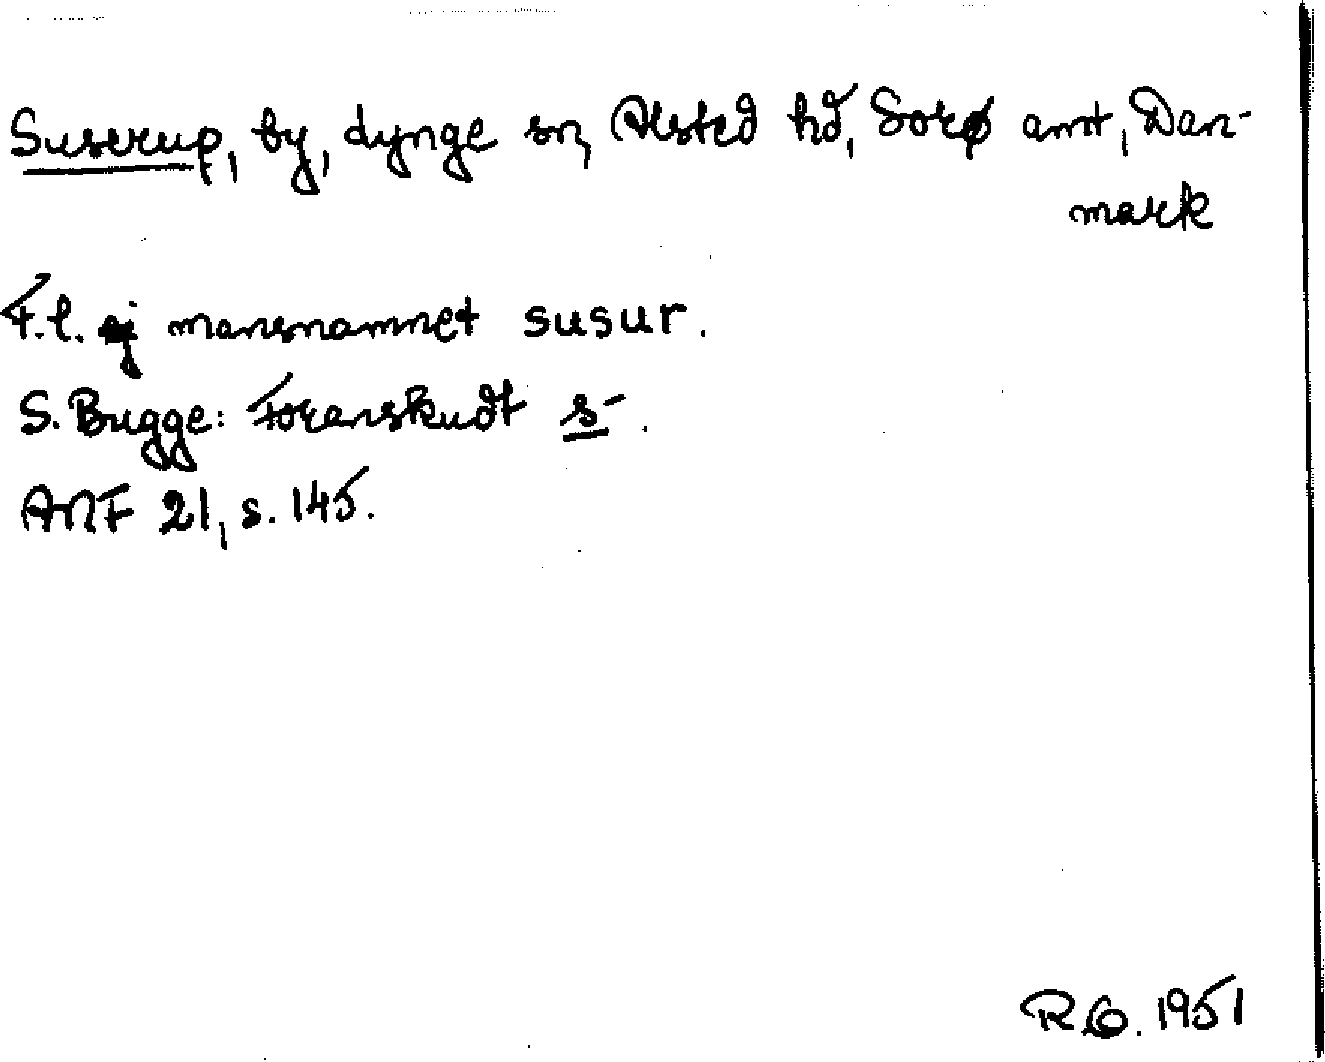 Suserup, by, Lynge sn, Alsted hd, Sorø amt, Dan-
mark
F.l. ej mansnamnet susur.
S. Bugge: Foranskudt s-.
ANF 21, s. 145.
R.G. 1951